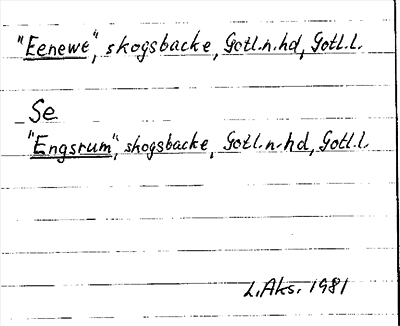 "Eenewe", skogsbacke, Gotl.n.hd, Gotl.l.
Se
"Engsrum", skogsbacke, Gotl.n.hd, Gotl.l.
L.Aks. 1981